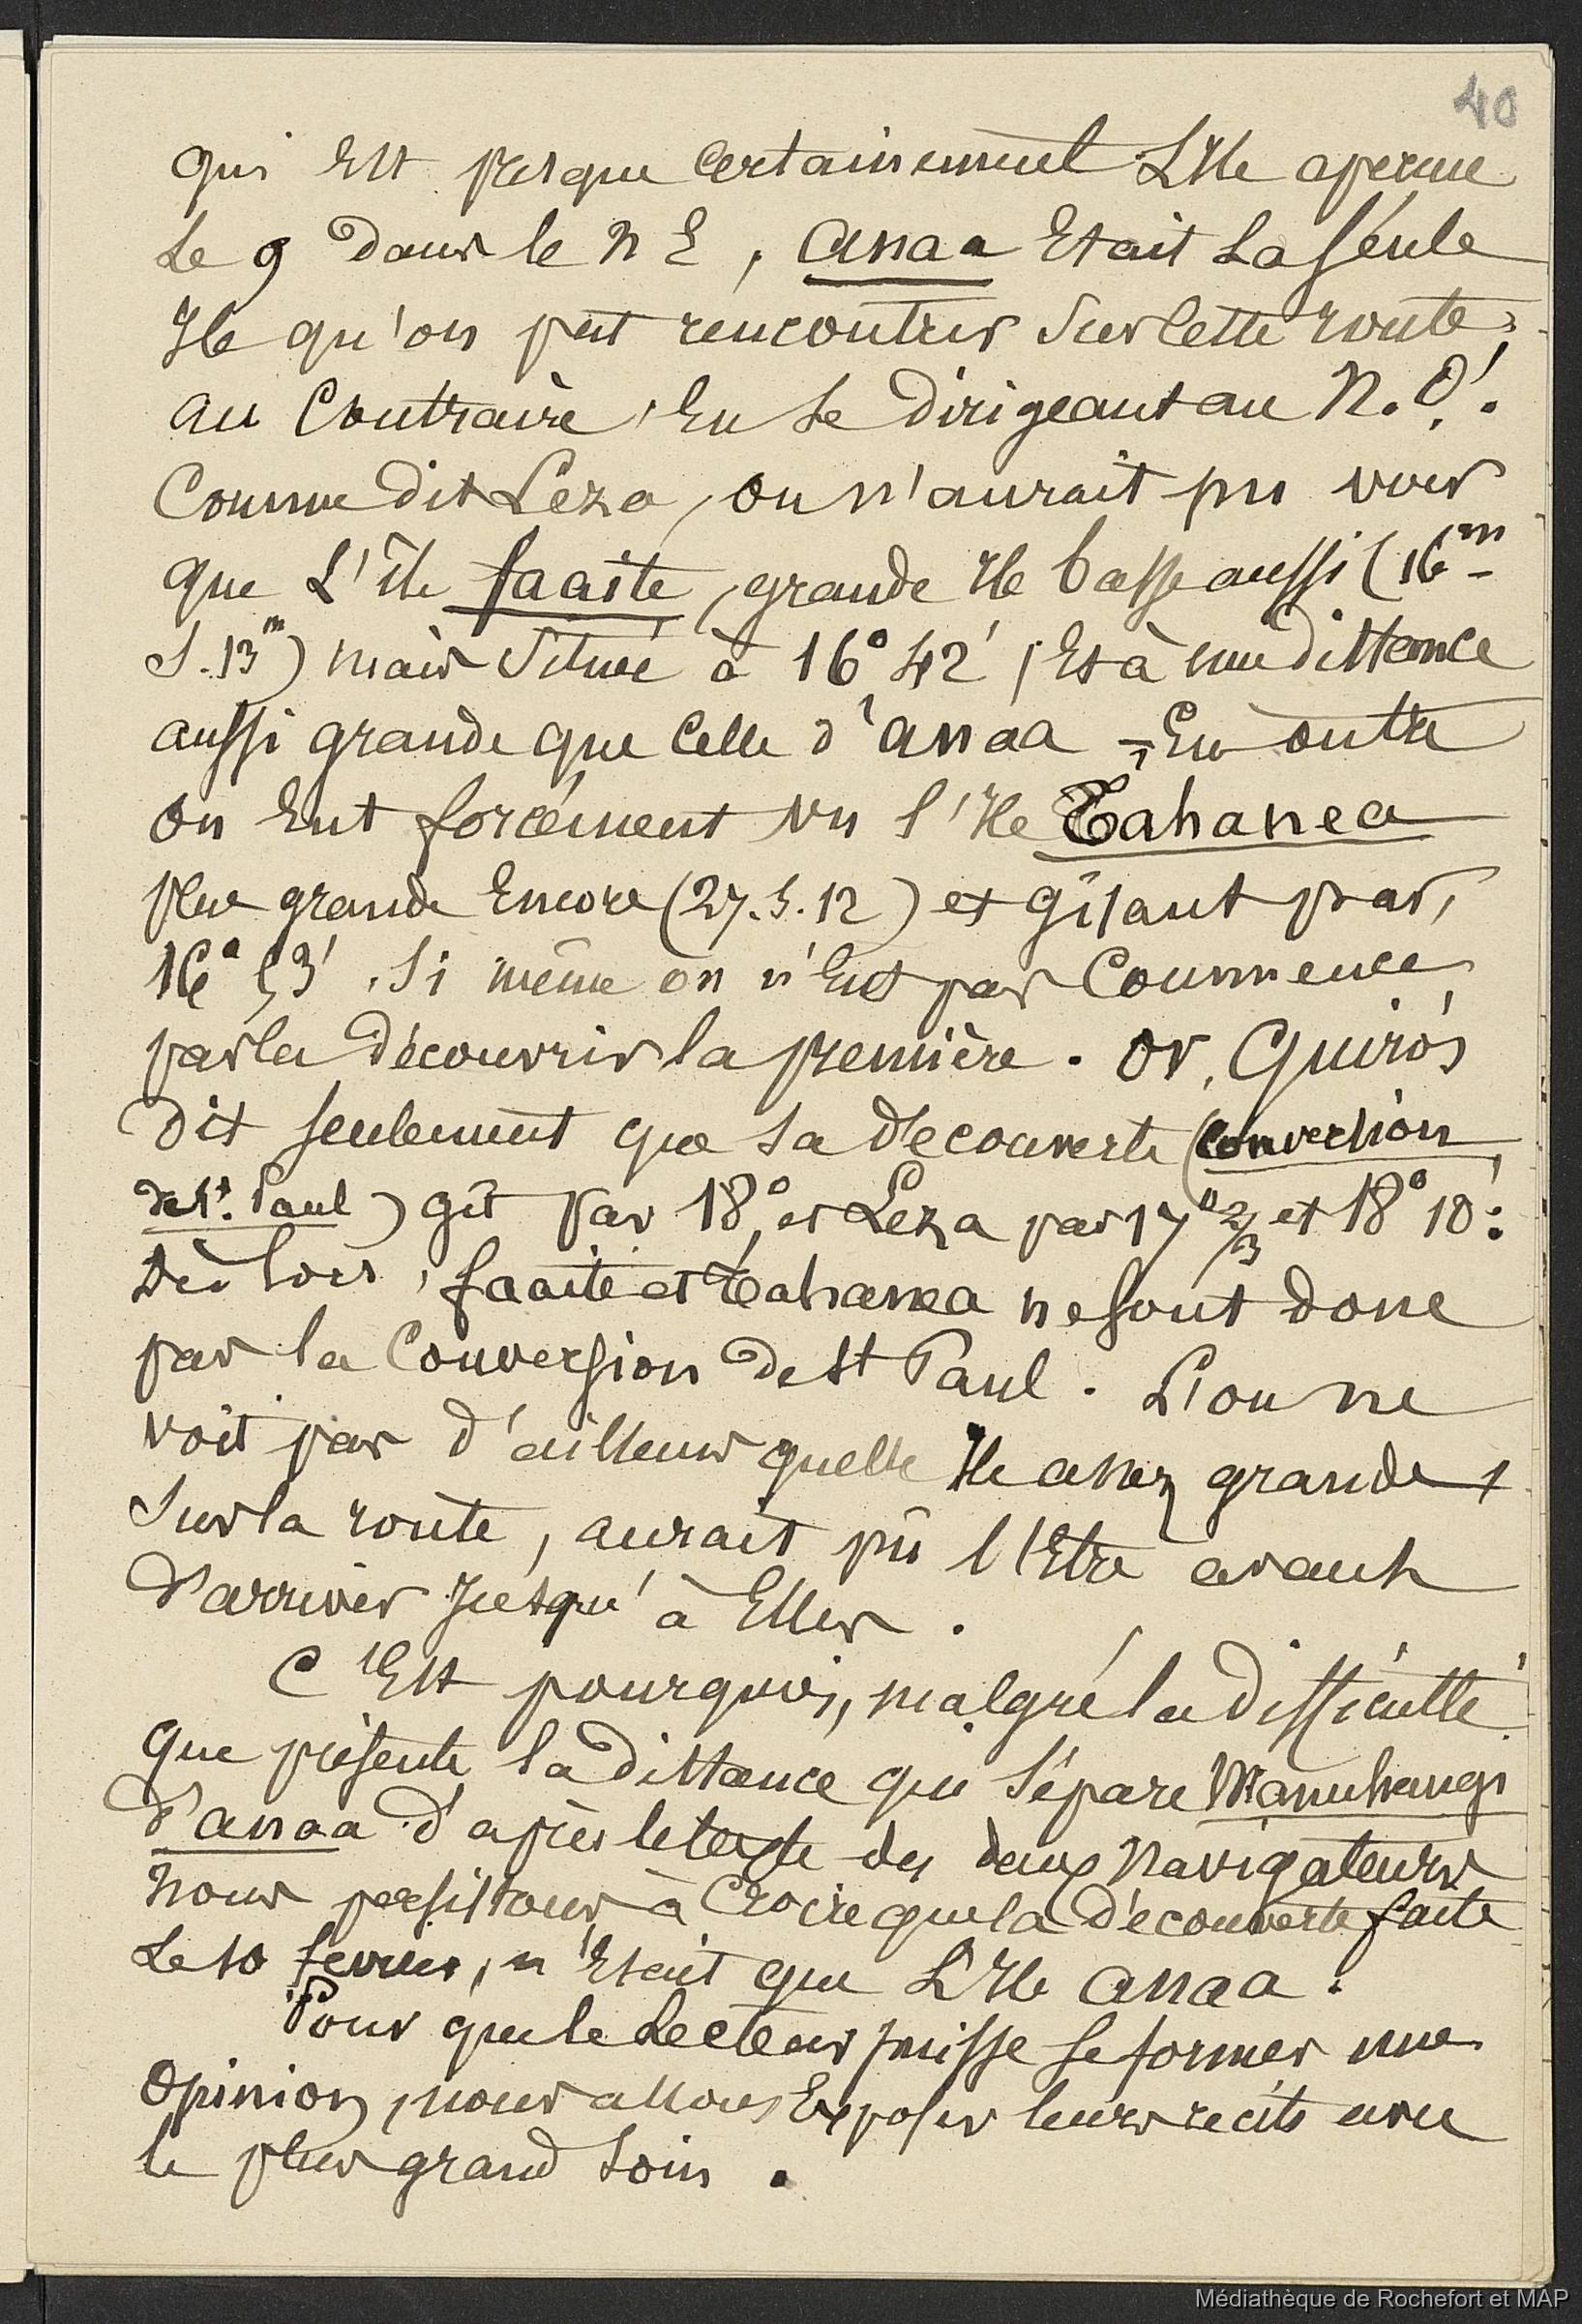 40
qui Est presque certainement L'Ile aperçue
Le 9 dans le N E, Anaa Etait La seule
Ile qu'on put rencontrer sur cette route;
au Contraire, En se dirigeant au N.O.
Comme dit Leza, on n'aurait pu voir
que L'île faaite, grande Ile basse aussi (16 m
S. 13 m) mais située à 16° 42', Et à une distance
aussi grande que celle d'anaa - En outre
on Eut forcément vu l'Ile Tahanea
plus grande Encore (27. S. 12) et gisant par,
16° 53'. Si même on n'Eut pas Commencé
par la découvrir la première. Or, Quirós
dit seulement que sa découverte (Conversion
de St. Paul) gît par 18°, et Leza par 17° 2/3 et 18° 10':
Dès lors, faaite et Tahanea ne sont donc
pas la Conversion de St Paul. L'on ne
voit pas d'ailleurs quelle Ile assez grande,
sur la route, aurait pû l'Etre avant
d'arriver jusqu'à Elles.
C'Est pourquoi, malgré la difficulté
que présente la distance qui sépare Manuhangi
d'anaa d'après le texte des deux Navigateurs
nous persistons à Croire que la découverte faite
Le 10 fevrier, n'Etait que L'Ile anaa.
Pour que le Lecteur puisse se former une
opinion, nous allons Exposer leurs recits avec
le plus grand soin.
Médiathèque de Rochefort et MAP